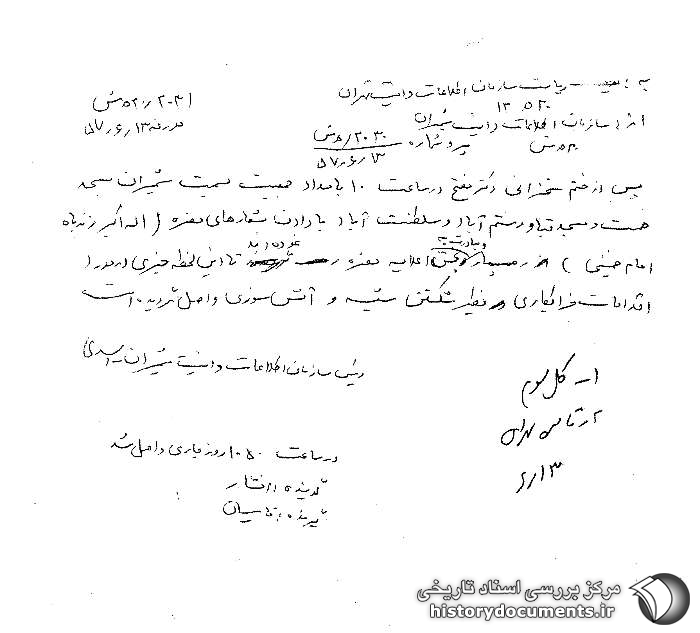 به: ریاست سازمان اطلاعات و امنیت تهران
۲۰۳۱/۵۲۰ ش
از: سازمان اطلاعات و امنیت شمیران
مورخه ۵۷٫۶٫۱۳
پیرو شماره ۲۰۳۰/۵۲۰ ش
۵۷٫۶٫۱۳
پس از ختم سخنرانی دکتر مفتح در ساعت ۱۰ بامداد جمعیت بسمت شمیران مسجد
همت و مسجد قبا و رستم آباد و سلطنت آباد با دادن شعارهای مضره (اله اکبر زنده باد
امام خمینی) اعلامیه مضره نموده اند تا این لحظه خبری از مورد
اقدامات خرابکاری نظیر شکستن شیشه و آتش سوزی واصل نگردیده است
رئیس سازمان اطلاعات و امنیت شمیران
۱- کل سوم
۶٫۱۳
در ساعت ۱۰۵۰ روز جاری واصل شد
گوینده افشار
گیرنده
مرکز بررسی اسناد تاریخی
historydocuments.ir